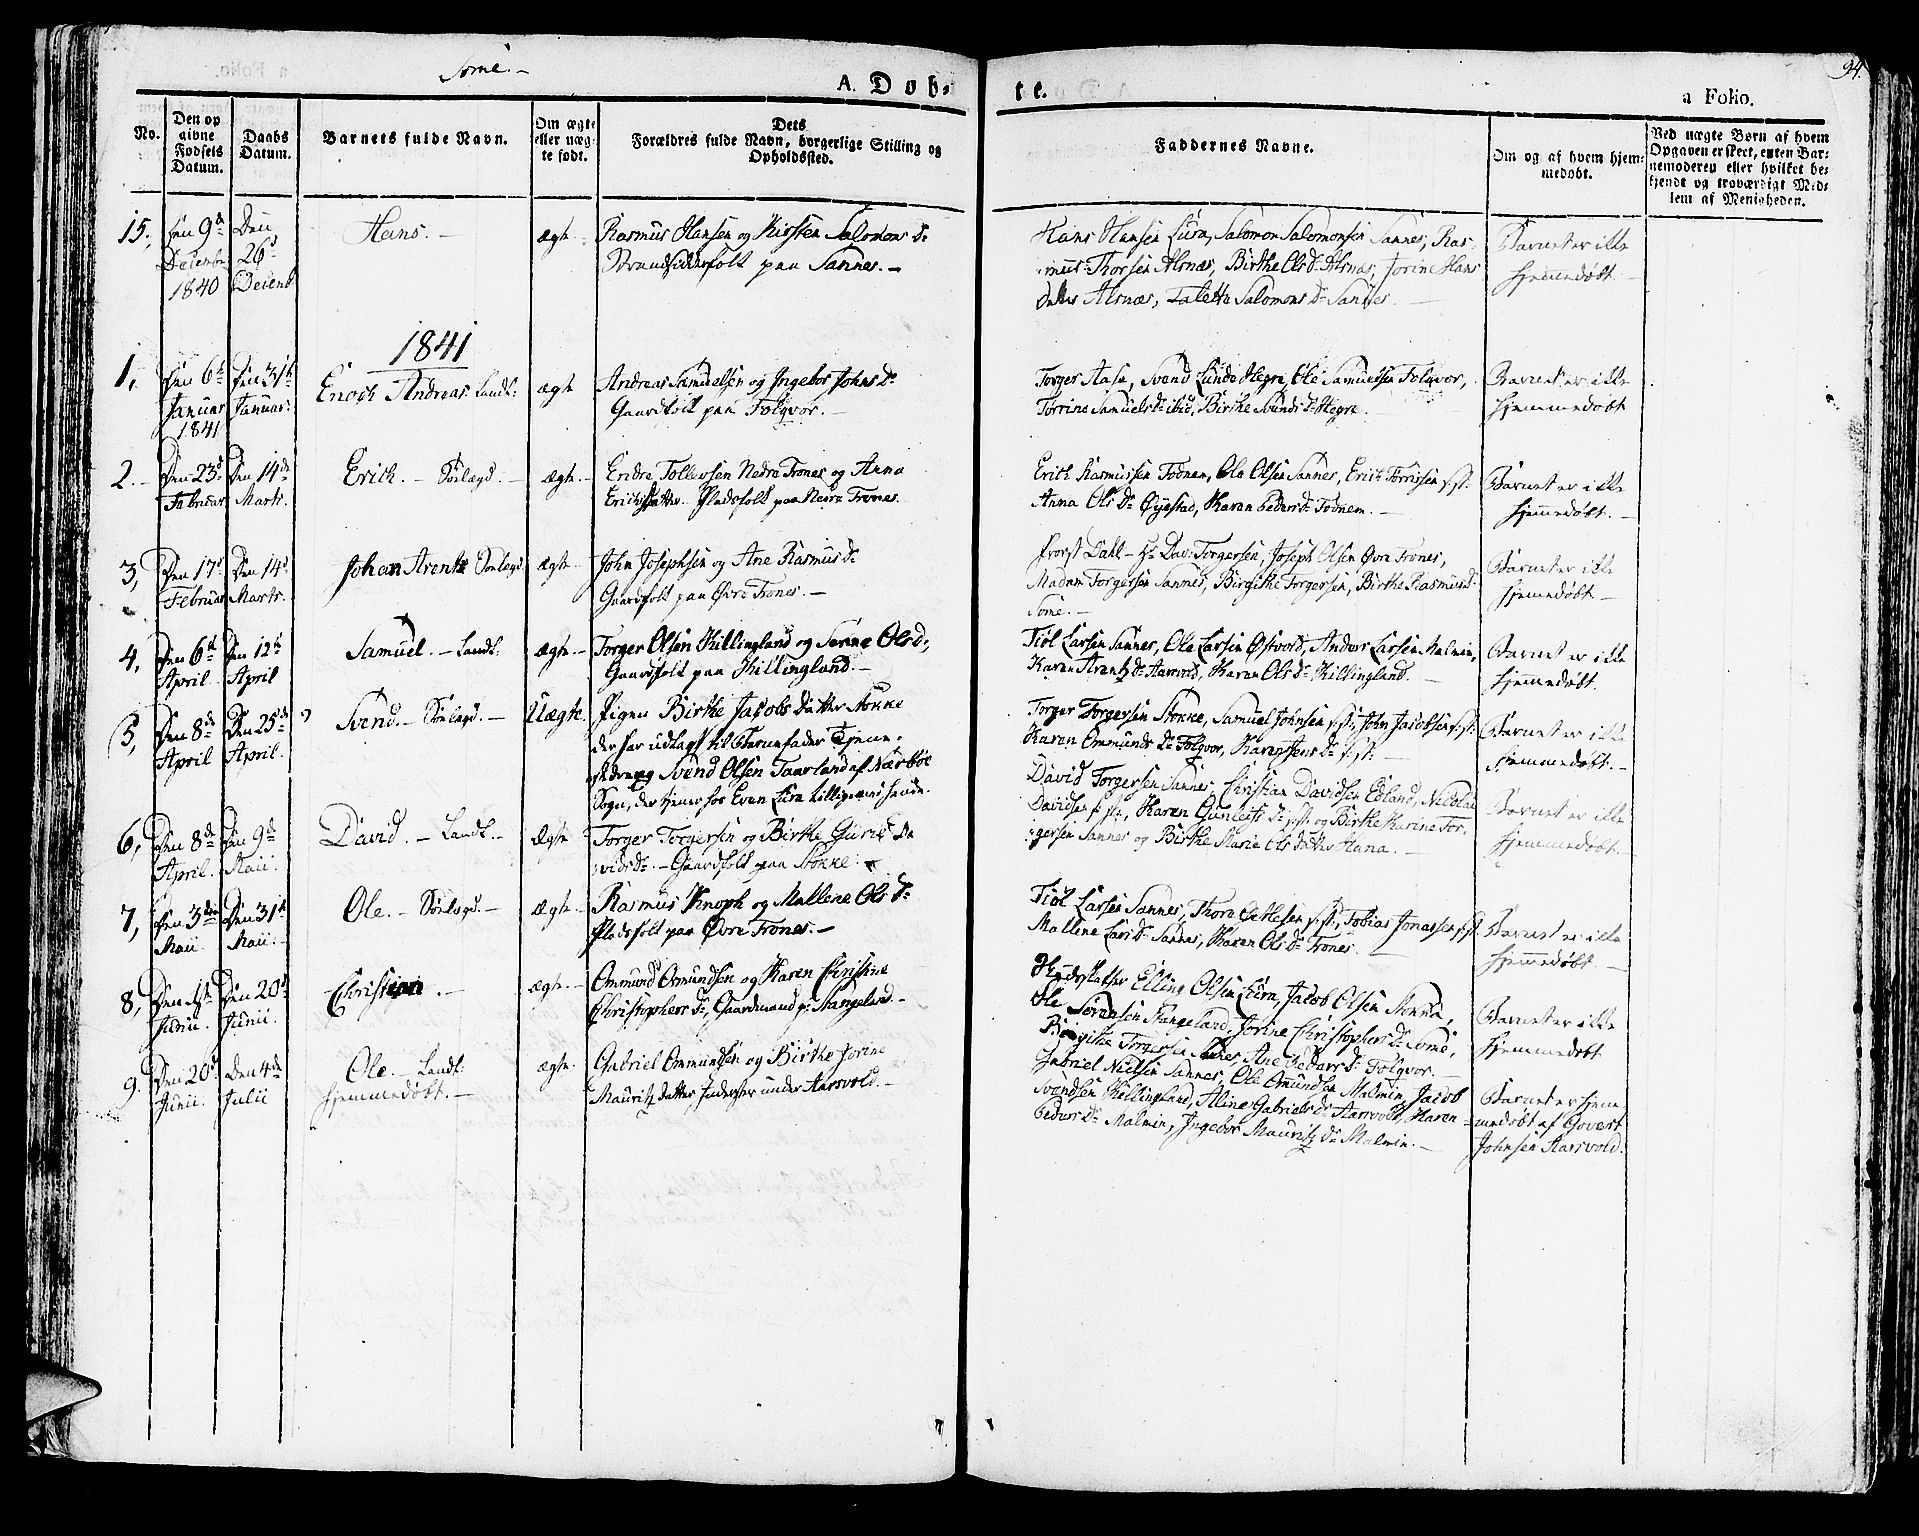 Some.
94.
A. Døb-
te.
a Folio.
No.
Den op
givne
Fødsels
Datum.
Daabs
Datum.
Barnets fulde Navn.
Om ægte
eller uæg-
te født.
Dets
Forældres fulde Navn, borgerlige Stilling og
Opholdssted.
Faddernes Navne.
Om og af hvem hjem-
medøbt.
Ved uægte Børn af hvem
Opgaven er skeet, enten Bar-
nemoderen eller hvilket be-
kjendt og troværdigt Med-
lem af Menigheden.
15.
Den 9d
Decembr
1840
Den
26d
Decemb
Hans.
ægte
Rasmus Hansen og Kirsten Salomons Dr
Strandsidderfolk paa Sannes.
Hans Hansen Lura, Salomon Salomonsen Sannes, Ras-
mus Thorsen Alsnæs, Birthe Ols Dr Alsnæs, Jorine Hans
Alsnæs, Taletta Salomons Dr Sannes.
Barnet er ikke
hjemmedøbt
1841
1,
Den 6t
Januar
1841
Den 31t
Januar
Enoch Andreas Landt.
ægte
Andreas Samuelsen og Ingebor Johns Dr
Gaardfolk paa Folgvor.
Torger Aase, Svend Hegre, Ole Samuelsen Folgvor,
Torrine Samuels Dr ibid, Birthe Svends Dr Hegre.
Barnet er ikke
hjemmedøbt
2.
Den 23d
Februar
Den 14de
Marts.
Erich. Sønlagd.
ægte
Endre Tollevsen Nedre Trones og Anna
Plads folk paa Nedre Trones.
Erich Rasmussen Fodnem, Ole Olsen Sannes, Erich Torrissen s.st.
Anna Ols Dr Øyestad, Karen Peders Dr Fodnem.
Barnet er ikke
hjemmedøbt.
3,
Den 17d
Februar
Den 14d
Marts.
Johan Arentz Sønlagd
ægte
John Josephsen og Ane Rasmus Dr
Gaardfolk paa Øvre Trones.
Provst Dahl Hr Dav: Torgersen, Joseph Olsen Øvre Trones,
Madam Torgersen Sannes, Birgithe Torgersen, Birthe Rasmusd.
Some.
Barnet er ikke
hjemmedøbt
4,
Den 6te
April
Den 12te
April
Samuel. Landt.
ægte
Torger Olsen Killingland og Serine Olsd.
Gaardfolk paa Killingland.
Tiøl Larsen Sannes, Ole Larsen Østvold, Anders Larsen Malmin,
Karen Arentz Dr Aarsvold, Karen Ols Dr Killingland.
Barnet er ikke
hjemmedøbt.
5,
Den 8de
April
Den 25de
April
Svend. Sønlagd.
Uægte.
Pigen Birthe Jacobs Datter Stokke
der har udlagt til Barnefader Tjene-
stedreng Svend Olsen Taarland af Nærbøe
Sogn, der tjener hos Even Lura
Torger Torgersen Stokke, Samuel Johnsen s.st., John Jacobsen s.st.
Karen Ommunds Dr Folgvor, Karen Jens Dr s.st.
Barnet er ikke
hjemmedøbt.
6,
Den 8de
April.
Den 9de
Maii
David. Landt.
Ægte
Torger Torgersen og Birthe Gurie Da-
vids Dr Gaardfolk paa Stokke.
David Torgersen Sannes, Christian Davidsen Edland, Nicolai
Davidsen s.st., Karen Gunleifs Dr s.st. og Birthe Karine Tor-
gersen Sannes og Birthe Marie Ols Datter Hana.
Barnet er ikke
hjemmedøbt.
7,
Den 3die
Maii
Den 31t
Maii
Ole. Sønlagd.
ægte
Rasmus Knoph og Mallene Ols Dr
Pladsfolk paa Øvre Trones.
Tiøl Larsen Sannes, Thore s.st., Tobias Jonassen s.st.
Mallene Lars Dr Sannes, Karen Ols Dr Trones.
Barnet er ikke
hjemmedøbt.
8,
Den
Junii.
Den 20d
Junii.
Christian.
ægte.
Ommund Omundsen og Karen Christine
Christophers Dr, Gaardmand p. Stangeland.
Elling Olsen Lura, Jacob Olsen
Ole Sørensen Stangeland, Jorine Christophers Dr Some,
Birgithe Torgersen Sannes, Ane Peders Dr Folgvor.
Barnet er ikke
hjemmedøbt
9.
Den 20d
Junii.
Den 4de
Julii
Ole. Landt.
hjemmedøbt.
ægte.
Gabriel Ommundsen og Birthe Jorine
Mauritz datter Inderster under Aarsvold.
Gabriel Nielsen Sannes, Ole Omundsen Malmin, Jacob
Svendsen Killingland, Aline Gabriels Dr Aarsvold, Karen
Peders Dr Malmin, Ingebor Mauritz Dr Malmin.
Barnet er hjem-
medøbt af Govert
Johnsen Aarsvold.